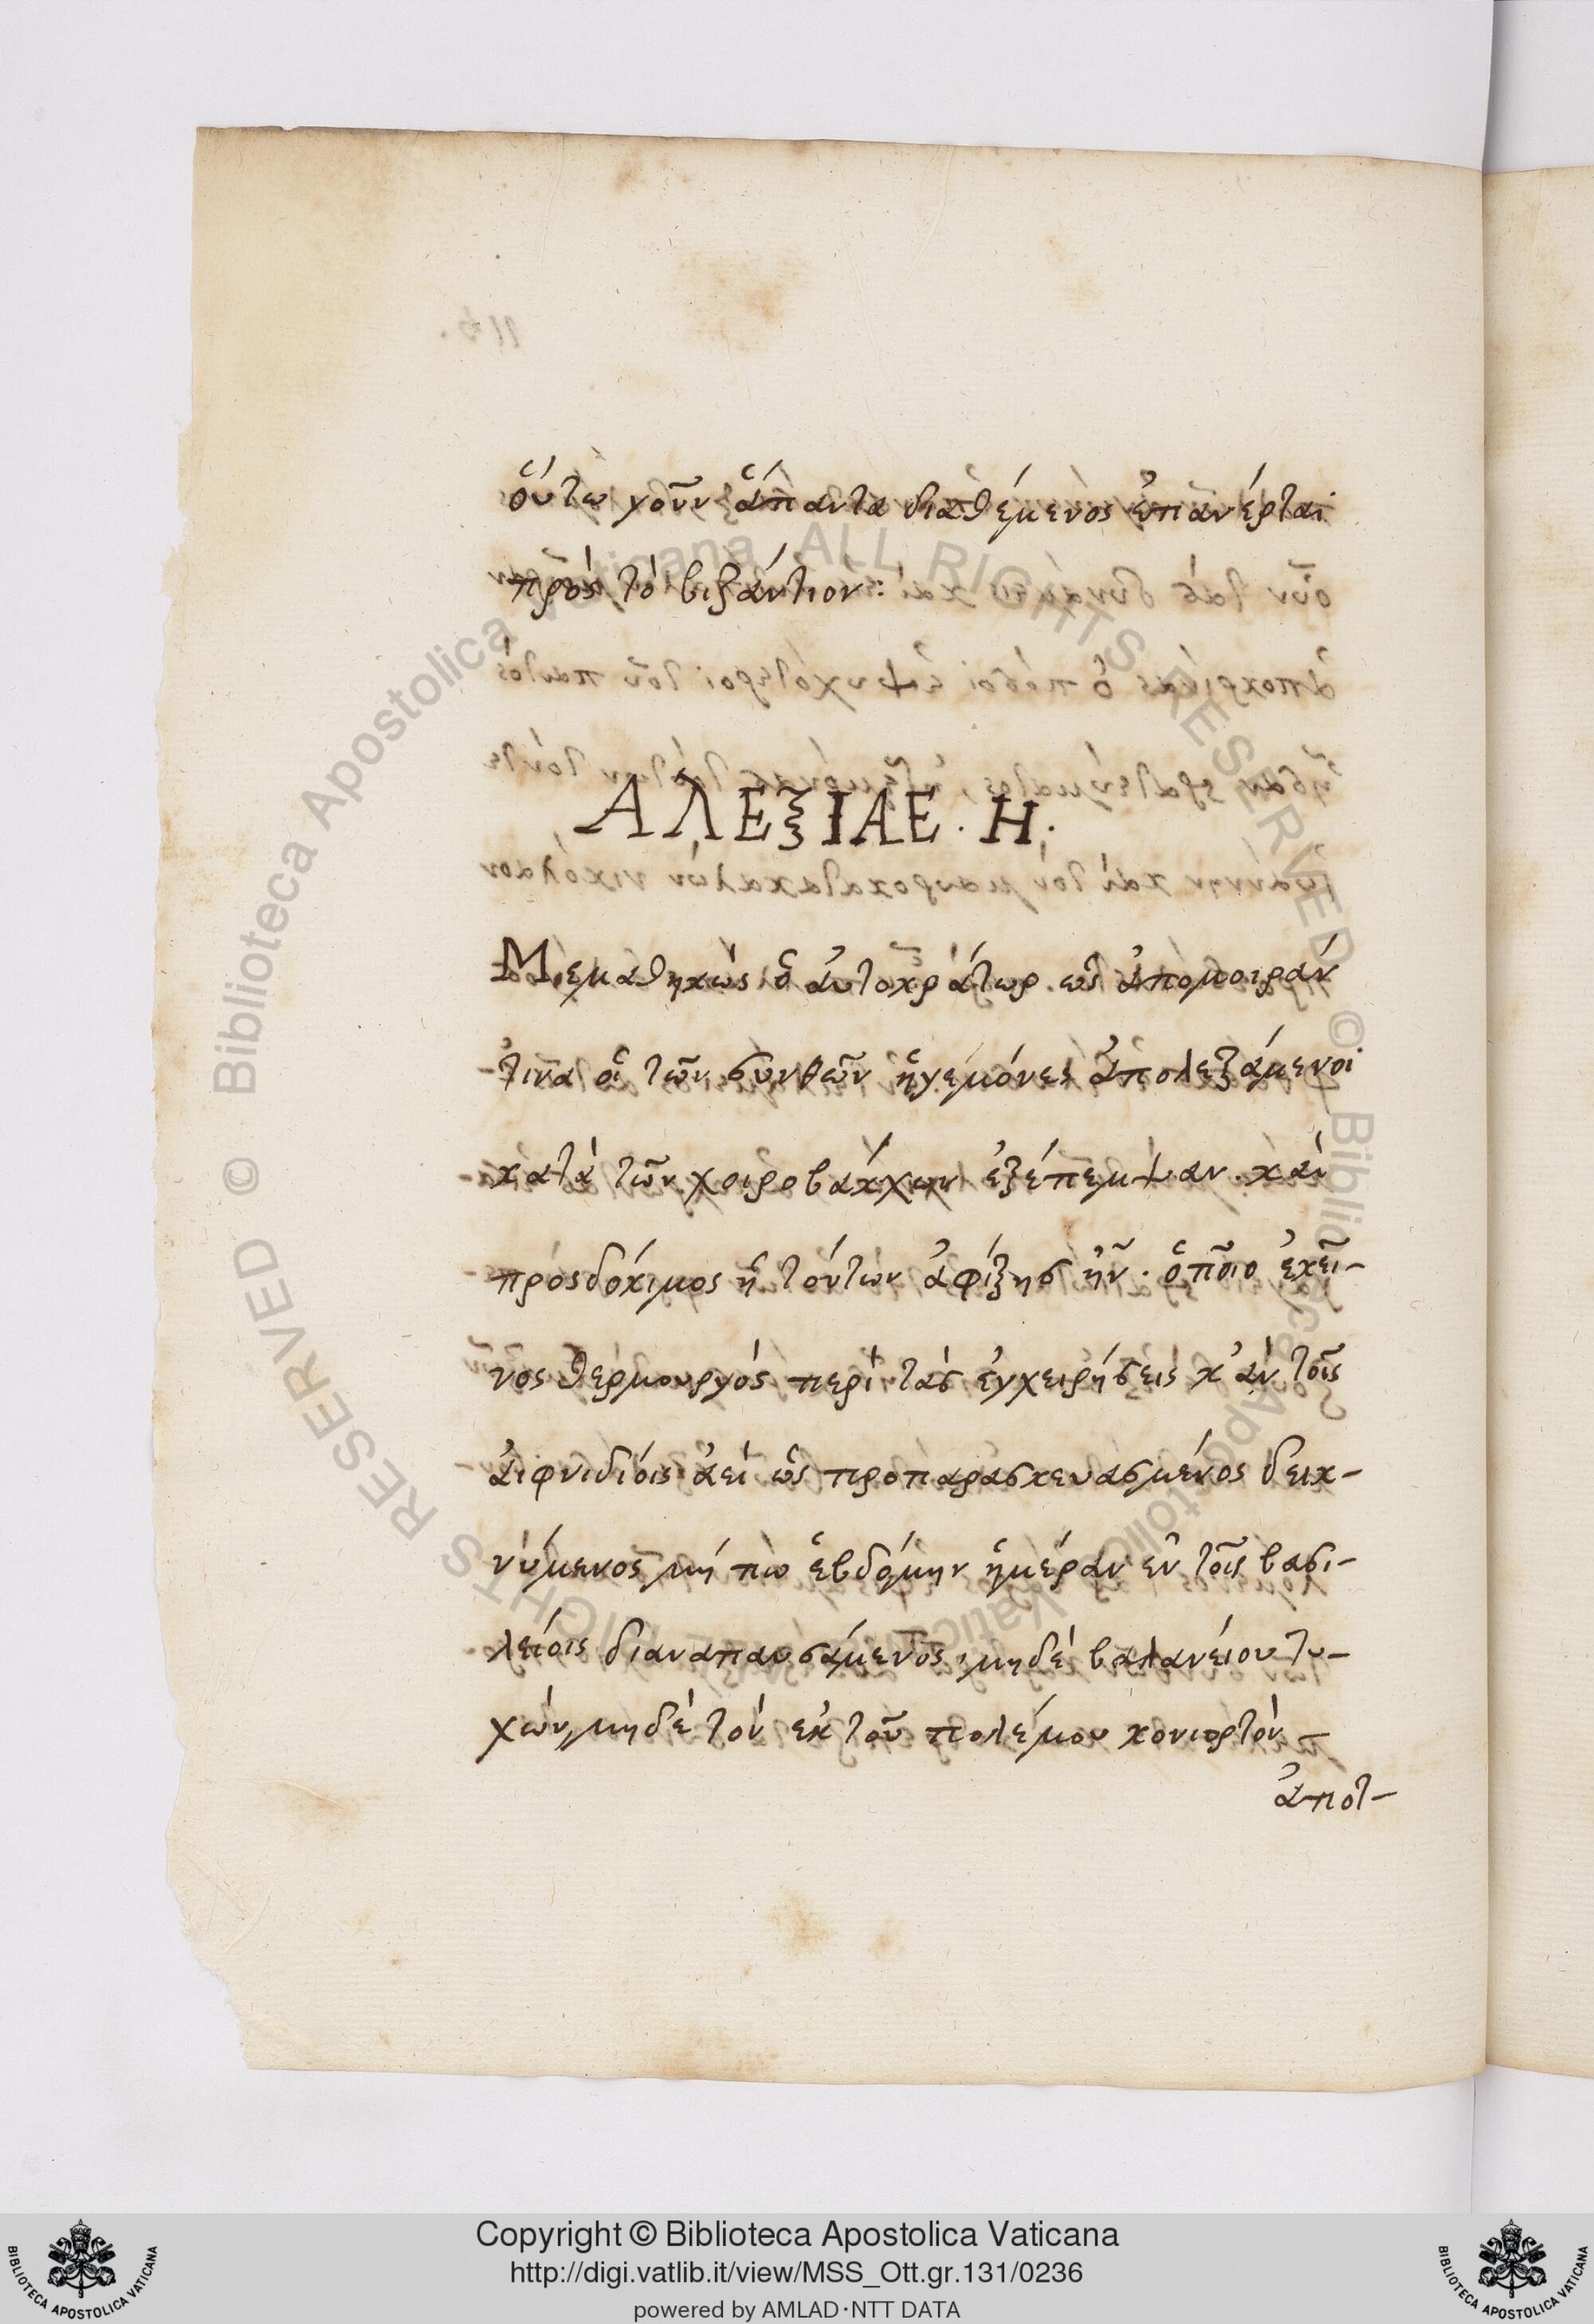 ὅυτω γοῦν ἅπαντα διαθέμενος ἐπανέρται
πρὸς τὸ βιζάντιον:
ΑΛΕΞΙΑΕ. Η.
Μεμαθηκὼς ὁ ἀυτοκράτωρ ὡς ἀπομοιράν
τινα οἱ τῶν σκυθῶν ἡγεμόνες ἀπολεξάμενοι
κατὰ τῶν χοιροβάκχων ἐξέπεμψαν. καὶ
προσδόκιμος ἡ τόυτων ἀφίξησ ἠν. ὁποῖο ἐκεῖ-
νος θερμουργός περὶ τὰσ ἐγχειρήσεις κἀν τοῖς
ἀιφνιδίοις ἀεὶ ὡς προπαρασκευασμένος δεικ-
νύμενος μή πω ἑβδόμην ἡμέραν ἐν τοῖς βασι-
λείοις διαναπαυσάμενος, μηδὲ βαλανείου τυ-
χὼν, μηδὲ τὸν ἐκ τοῦ πολέμου κονιορτὸν
ἀποτ-
Copyright © Biblioteca Apostolica Vaticana
http://digi.vatlib.it/view/MSS_Ott.gr.131/0236
powered by AMLAD·NTT DATA
BIBLIOTECA APOSTOLICA VATICANA
BIBLIOTECA APOSTOLICA VATICANA
© Biblioteca Apostolica Vaticana ALL RIGHTS RESERVED
© Biblioteca Apostolica Vaticana ALL RIGHTS RESERVED